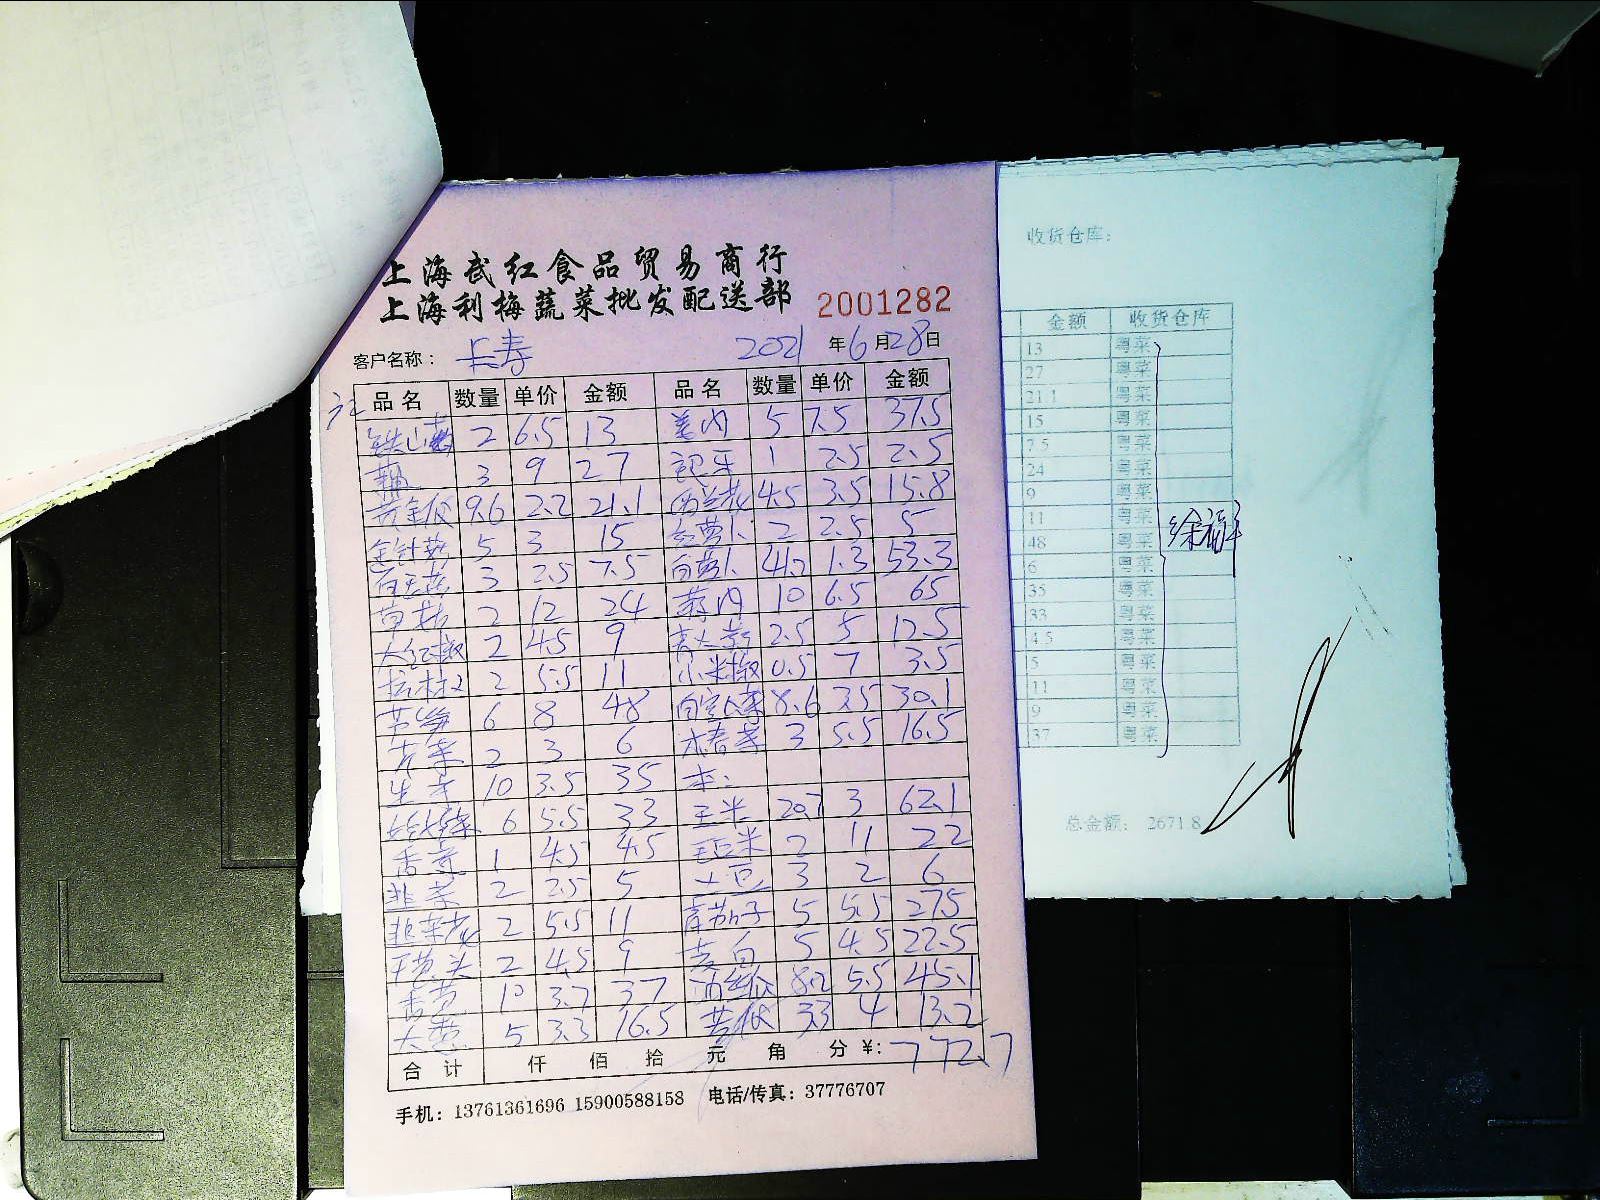 上海武红食品贸易商行
上海利梅蔬菜批发配送部 2001282
客户名称： 长寿 2021年6月28日
品名 数量 单价 金额 品名 数量 单价 金额
铁山药 2 6.5 13 姜肉 5 7.5 37.5
藕 3 9 27 1 2.5 2.5
黄金瓜 9.6 2.2 21.1 西兰花 4.5 3.5 15.8
金针菇 5 3 15 红萝卜 2 2.5 5
白玉菇 3 2.5 7.5 白萝卜 41.0 1.3 53.3
草菇 2 12 24 蒜肉 10 6.5 65
大红椒 2 4.5 9 青大蒜 2.5 5 12.5
杭椒 2 5.5 11 小米椒 0.5 7 3.5
芦笋 6 8 48 8.6 3.5 30.1
芹菜 2 3 6 3 5.5 16.5
生菜 10 3.5 35 本：
6 5.5 33 玉米 20.7 3 62.1
香芹 1 4.5 4.5 毛豆米 2 11 22
韭菜 2 2.5 5 土豆 3 2 6
韭菜花 2 5.5 11 青茄子 5 5.5 27.5
干葱头 2 4.5 9 茭白 5 4.5 22.5
香芹 10 3.7 37 8.2 5.5 45.1
大葱 5 3.3 16.5 苦瓜 3.3 4 13.2
合计 仟 佰 拾 元 角 分 ¥: 772.7
手机：13761361696 15900588158 电话/传真：37776707
收货仓库：
金额 收货仓库
13 粤菜
27 粤菜
21.1 粤菜
15 粤菜
7.5 粤菜
24 粤菜
9 粤菜
11 粤菜
48 粤菜
6 粤菜
35 粤菜
33 粤菜
4.5 粤菜
5 粤菜
11 粤菜
9 粤菜
37 粤菜
总金额： 2671.8